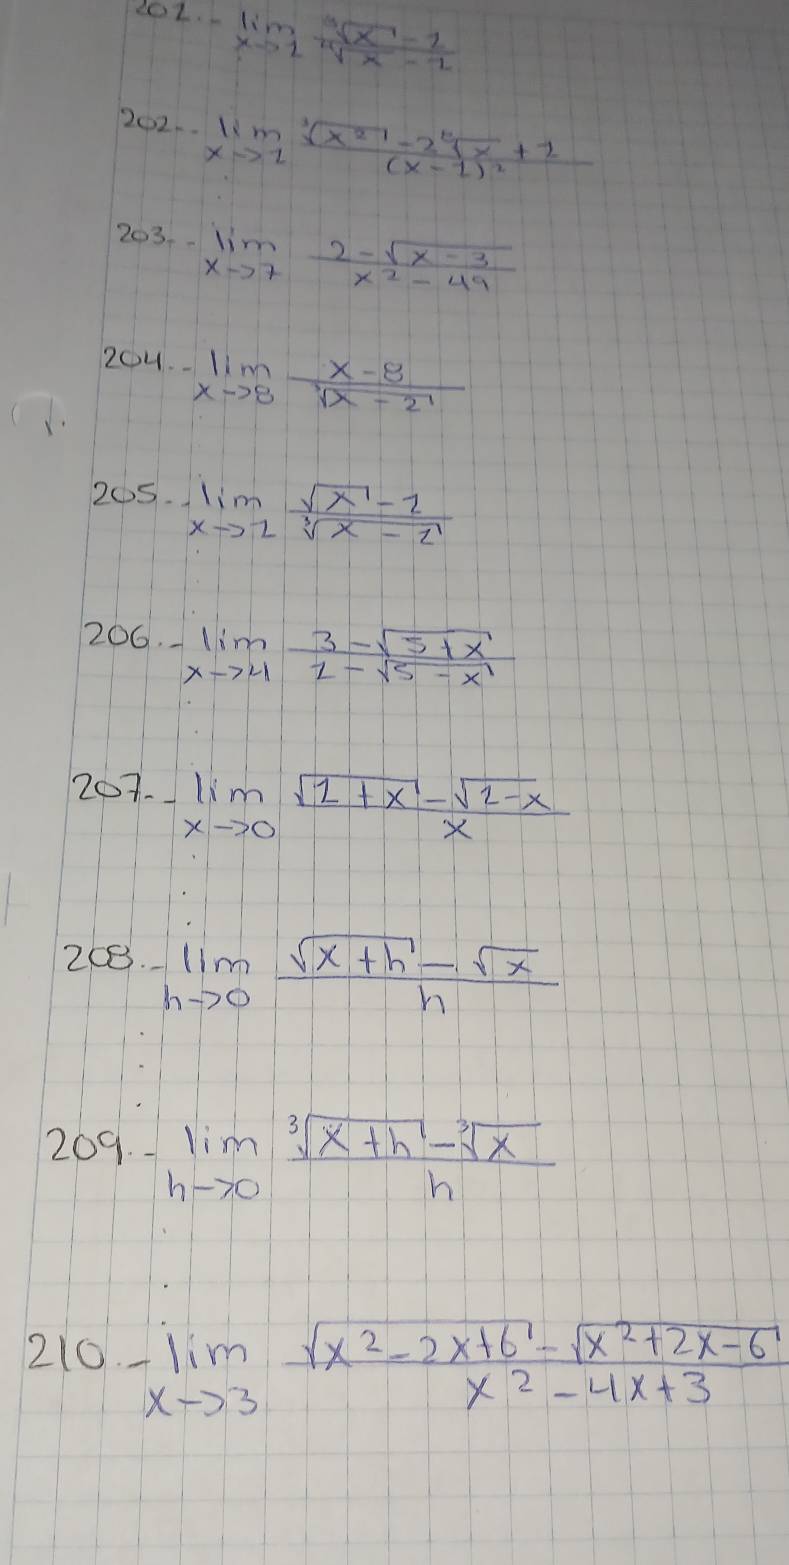 201.- lim x->1 (∛x - 1)/(∜x - 1)
202.- lim x->1 (∛(x²) - 2∛x + 1)/(x - 1)²
203.- lim x->7 (2 - √(x - 3))/(x² - 49)
204.- lim x->8 (x - 8)/(∛(x - 2))
205.- lim x->1 (√x - 1)/(∛(x - 1))
206.- lim x->4 (3 - √(5 + x))/(1 - √(5 - x))
207.- lim x->0 (√(1 + x) - √(1 - x))/x
208.- lim h->0 (√(x + h) - √x)/h
209.- lim h->0 (∛(x + h) - ∛x)/h
210.- lim x->3 (√(x² - 2x + 6) - √(x² + 2x - 6))/(x² - 4x + 3)